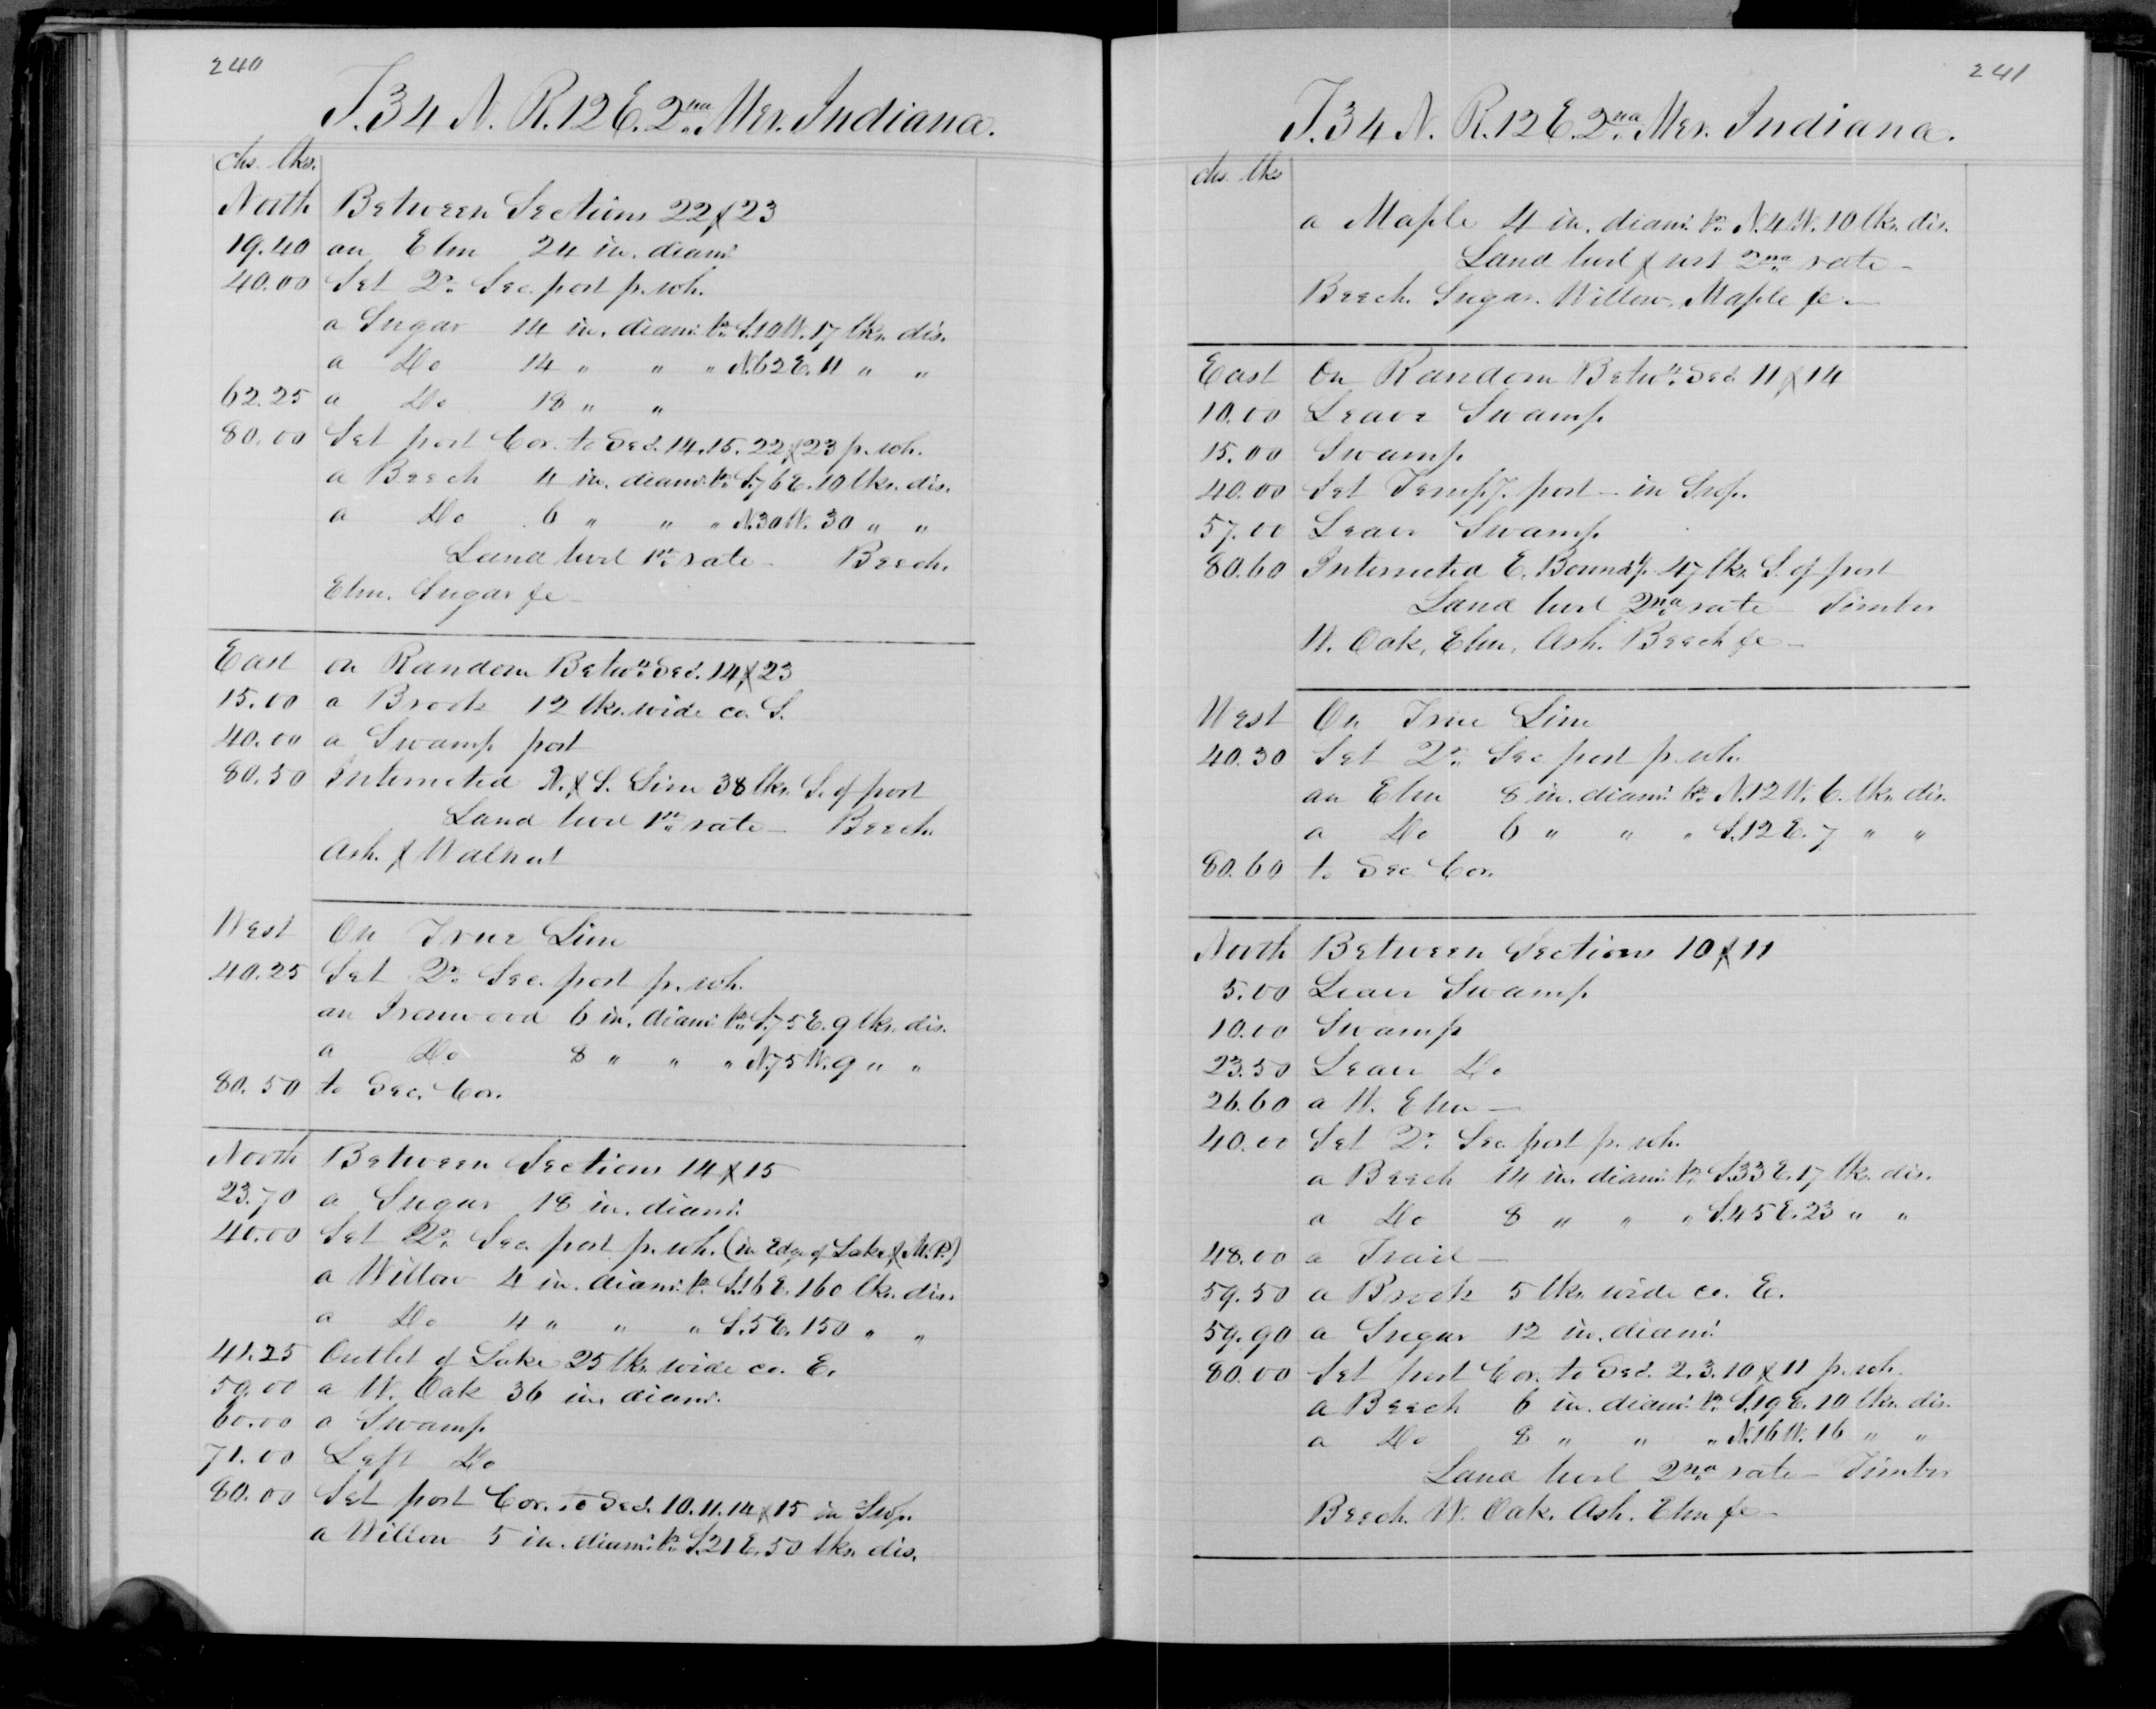 240
T. 34 N. R. 12 E. 2nd Mer. Indiana.
chs. lks.
North Between Sections 22 & 23
19.40 an Elm 24 in. diam.
40.00 Set Qr. Sec. post p. wh.
a Sugar 14 in. diam. br. S.10 W. 17 lks. dis.
a Do 14 " " " N.62 E. 11 " "
62.25 a Do 18 " "
80.00 Set post Cor. to Secs. 14.15.22 & 23 p. wh.
a Beech 4 in. diam. br. S.76 E. 10 lks. dis.
a Do 6 " " " N.30 W. 30 " "
Land level 1st rate - Beech.
Elm. Sugar &c -
East on Random Betwn. Secs. 14 & 23
15.00 a Brook 12 lks. wide co. S.
40.00 a Swamp post
80.50 Intersected N. & S. Line 38 lks. S. of post
Land level 1st rate - Beech.
Ash. & Walnut
West On True Line
40.25 Set Qr. Sec. post p. wh.
an Ironwood 6 in. diam. br. S.75 E. 9 lks. dis.
a Do 8 " " " N.75 W. 9 " "
80.50 to Sec. Cor.
North Between Sections 14 & 15
23.70 a Sugar 18 in. diam.
40.00 Set Qr. Sec. post p. wh. (in Edge of Lake & M.P.)
a Willow 4 in. diam. br. S.16 E. 160 lks. dis.
a Do 4 " " " S.5 E. 150 " "
41.25 Outlet of Lake 25 lks. wide co. E.
59.00 a W. Oak 36 in. diam.
60.00 a Swamp
71.00 Left Do
80.00 Set post Cor. to Secs. 10.11.14 & 15 in Swp.
a Willow 5 in. diam. br. S.21 E. 50 lks. dis.
241
T. 34 N. R. 12 E. 2nd Mer. Indiana.
chs. lks
a Maple 4 in. diam. br. N.4 W. 10 lks. dis.
Land level & wet 2nd rate -
Beech. Sugar. Willow. Maple &c. -
East On Random Betwn. Secs. 11 & 14
10.00 Leave Swamp
15.00 Swamp
40.00 Set Tempy. post - in Swp.
57.00 Leave Swamp
80.60 Intersected E. Boundy. 47 lks. S. of post
Land level 2nd rate - Timber
W. Oak, Elm, Ash. Beech &c -
West On True Line
40.30 Set Qr. Sec post p. wh.
an Elm 8 in. diam. br. N.12 W. 6. lks. dis.
a Do 6 " " " S.12 E. 7 " "
80.60 to Sec Cor.
North Between Sections 10 & 11
5.00 Leave Swamp
10.00 Swamp
23.50 Leave Do
26.60 a W. Elm -
40.00 Set Qr. Sec post p. wh.
a Beech 14 in. diam. br. S.33 E. 17 lks. dis.
a Do 8 " " " S.45 E. 23 " "
48.00 a Trail -
59.50 a Brook 5 lks. wide co. E.
59.90 a Sugar 12 in. diam.
80.00 Set post Cor. to Secs. 2.3.10 & 11 p. wh.
a Beech 6 in. diam. br. S.19 E. 10 lks. dis.
a Do 8 " " " N.16 W. 16 " "
Land level 2nd rate - Timber
Beech. W. Oak. Ash. Elm &c -